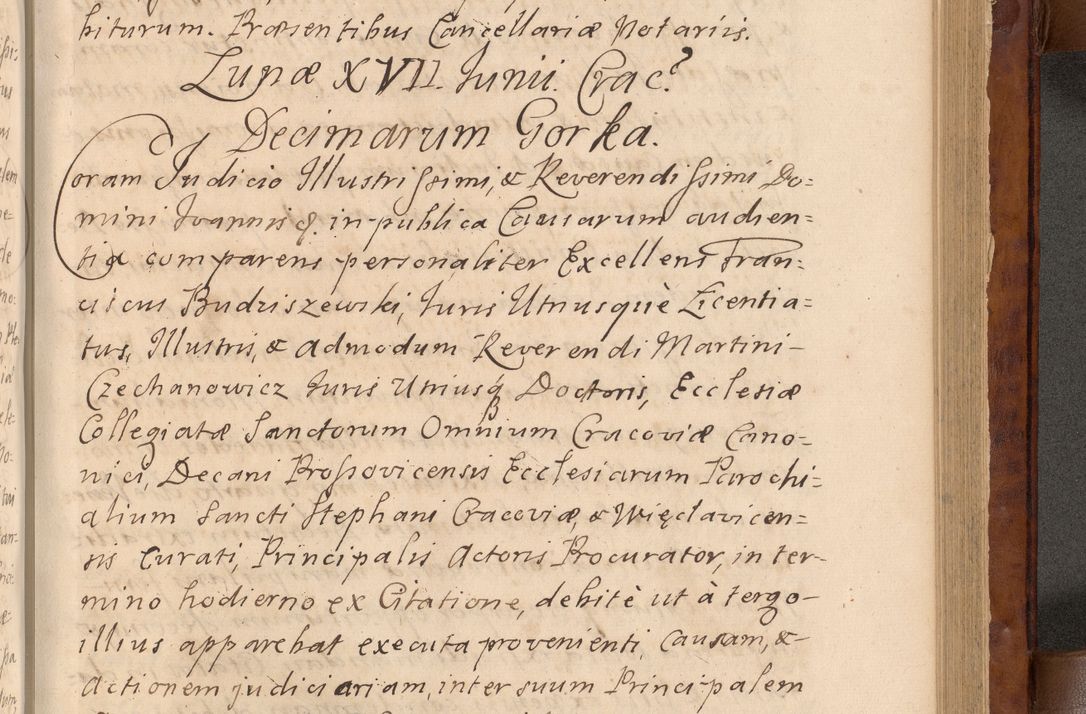 biturum. Præsentibus Cancellariæ Notariis.
Lunæ XVII. Junii. Crac?
Decimarum Gorka.
Coram Judicio Illustrissimi, & Reverendissimi Do=
mini Joannis &. in publica Causarum audien=
tia comparens personaliter Excellens Fran=
ciscus Budziszewski, Juris Utriusquè Licentia=
tus, Illustris, & admodum Reverendi Martini
Czechanowicz Juris Utriusq Doctoris, Ecclesiæ
Collegiatæ Sanctorum Omnium Cracoviæ Cano=
nici, Decani Proszovicensis Ecclesiarum Parochi=
alium Sancti Stephani Cracoviæ, & Więclavicen=
sis Curati, Principalis Actoris Procurator, in ter-
mino hodierno ex Citatione, debitè ut à tergo
illius apparebat executa provenienti, Causam, &
Actionem judiciariam, inter suum Principalem